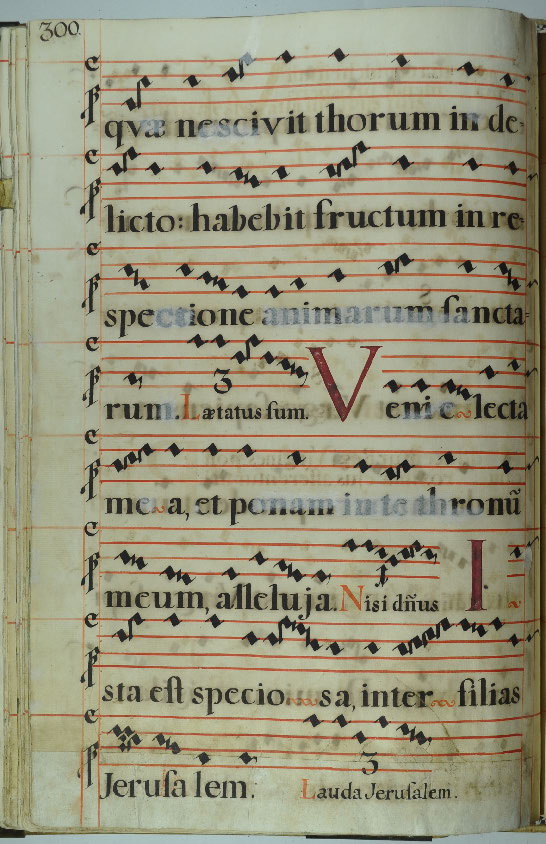 300.
quæ nescivit thorum in de-
licto: habebit fructum in re-
spectione animarum sancta-
rum. Lætatus sum. Veni electa
mea, et ponam in te thronū
meum, alleluja. Nisi dñus I
sta est speciosa, inter filias
Jerusalem. Lauda Jerusalem.
3
3